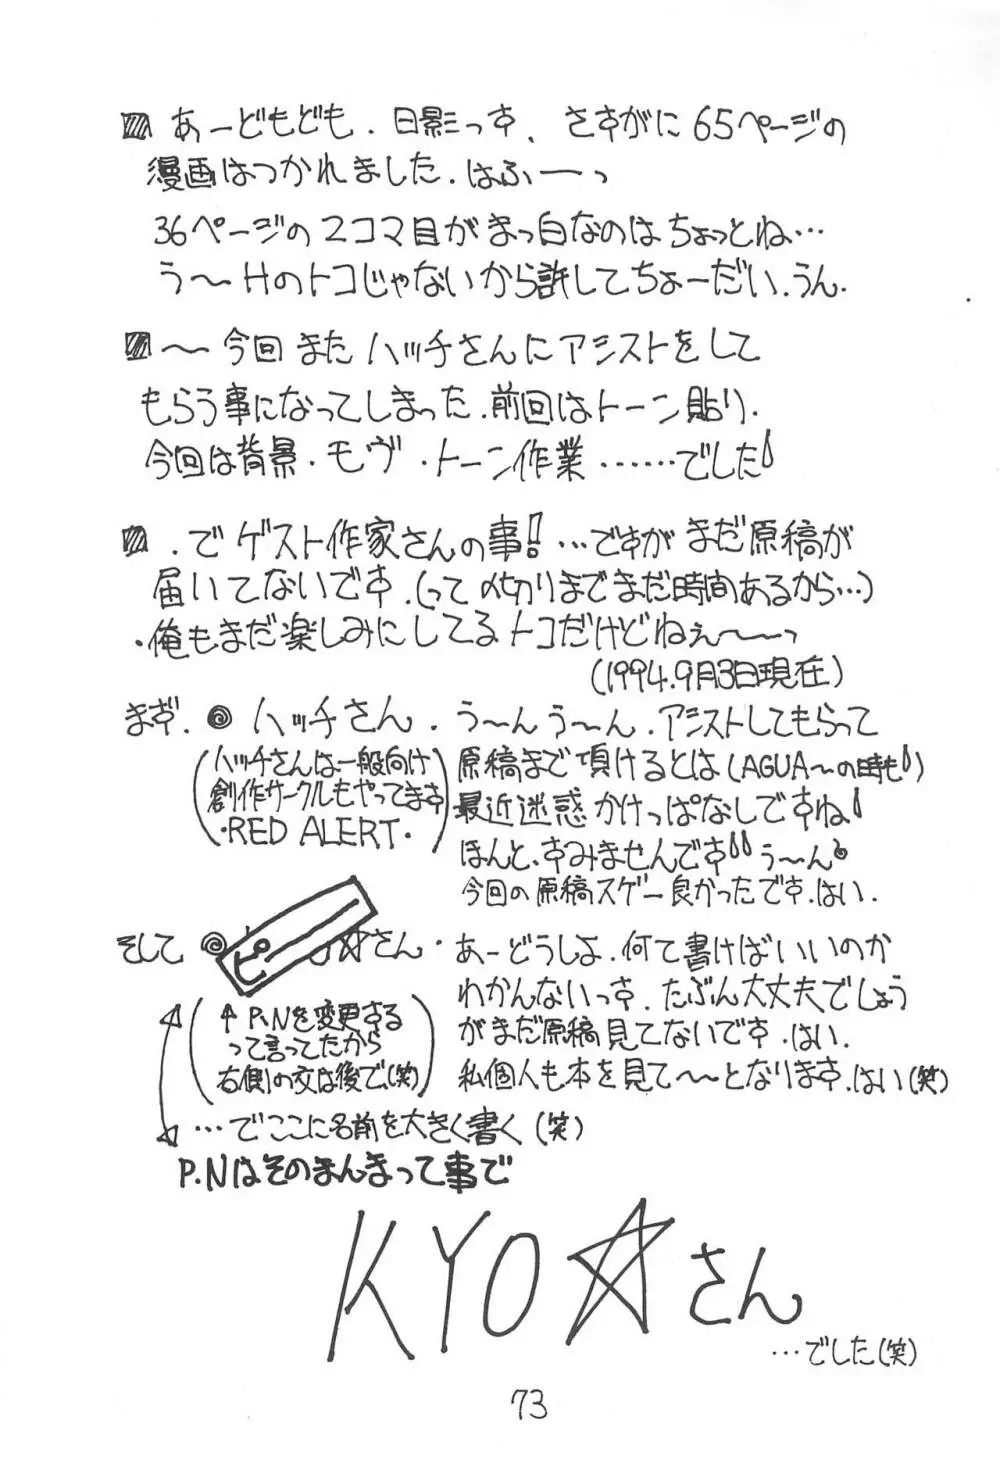 あーどもども．日影っす、さすがに65ページの
漫画はつかれました．はふーーっ
36ページの2コマ目がまっ白なのはちょっとね…
う〜Hのトコじゃないから許してちょーだい．うん．
〜今回またハッチさんにアシストをして
もらう事になってしまった．前回はトーン貼り．
今回は背景・モヴ・トーン作業……でした!
．でゲスト作家さんの事!…ですがまだ原稿が
届いてないです．(って〆切りまでまだ時間あるから…)
・俺もまだ楽しみにしてるトコだけどねぇ〜〜っ
(1994.9月3日現在)
まず．◎ハッチさん．う〜んう〜ん．アシストしてもらって
(ハッチさんは一般向け
創作サークルもやってます
・RED ALERT・)
原稿まで頂けるとは(AGUA〜の時も!)
最近迷惑かけっぱなしですね!
ほんと、すみませんです!!う〜ん。
今回の原稿スゲー良かったです．はい．
そして◎ピー☆さん・あーどうしよ．何て書けばいいのか
わかんないっす．たぶん大丈夫でしょう
がまだ原稿見てないです．はい．
私個人も本を見て〜〜となります．はい(笑)
(↑P.Nを変更する
って言ってたから
右側の文は後で(笑))
…でここに名前を大きく書く(笑)
P.Nはそのまんまって事で
KYO☆さん
…でした(笑)
73